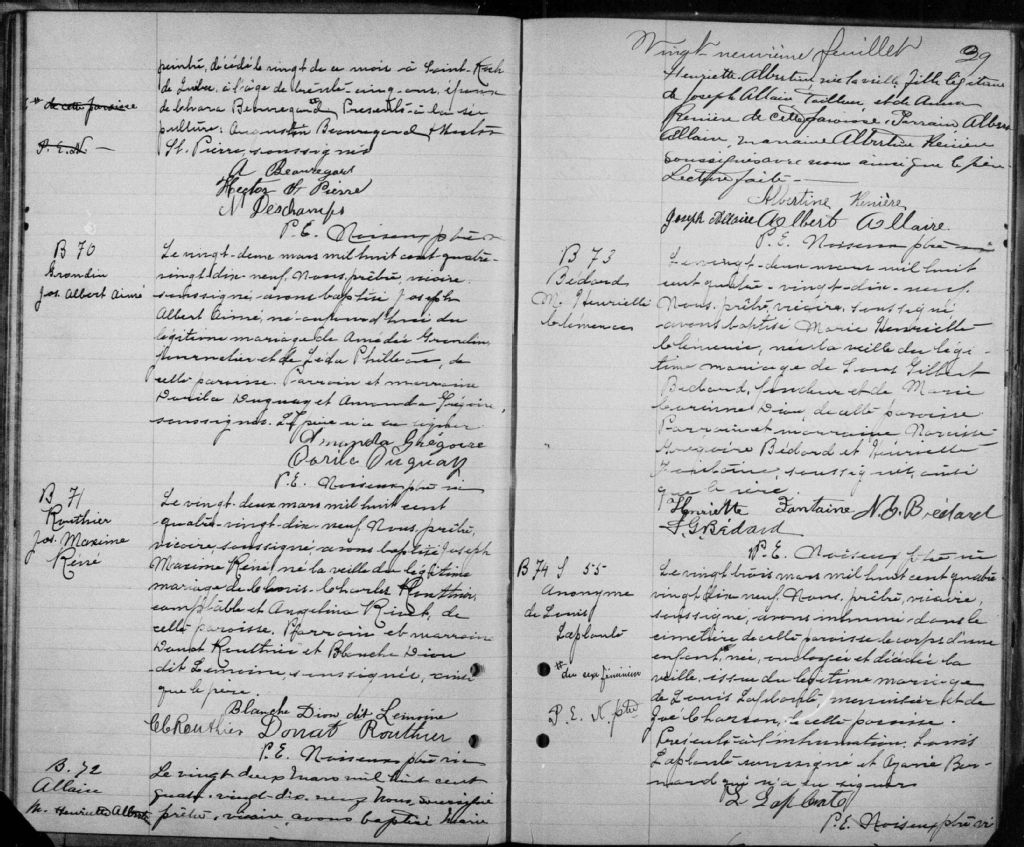 peintre, décédé le vingt de ce mois à Saint-Roch
de Québec, à l'âge de trente-cinq ans, époux
de Clara Beauregard. Présents à la sé-
pulture: Augustin Beauregard & Hector
St. Pierre, soussignés
de cette paroisse
P. E. N
A Beauregard
Hector St Pierre
N Deschamps
P. E. Noiseux ptre v
B 70
Grondin
Jos. Albert Aimé
Le vingt-deux mars mil huit cent quatre-
vingt-dix-neuf. Nous, prêtre, vicaire,
soussigné avons baptisé Joseph
Albert Aimé, né aujourd'hui du
légitime mariage de Amédé Grondin,
journalier et de Léda
cette paroisse. Parrain et marraine
Dorila Duguay et Amanda Grégoire,
soussignés. Le père n'a su signer
Amanda Grégoire
Dorila Duguay
P. E. Noiseux ptre vic
B 71
Routhier
Jos. Maxime
René
Le vingt-deux mars mil huit cent
quatre-vingt-dix-neuf. Nous, prêtre,
vicaire, soussigné avons baptisé Joseph
Maxime René né la veille du légitime
mariage de Charles Routhier,
comptable et Angelina de
cette paroisse. Parrain et marraine
Donat Routhier et Blanche Dion
dit Lemoine, soussignés, ainsi
que le père.
Blanche Dion dit Lemoine
Routhier Donat Routhier
P. E. Noiseux ptre vic
B. 72
Allaire
M. Henriette Albertine
Le vingt deux mars mil huit cent
quatre-vingt-dix-neuf Nous, soussigné
prêtre, vicaire, avons baptisé Marie
Vingt neuvième feuillet 29
Henriette Albertine née la veille, fille légitime
de Joseph Allaire Tailleur, et de
Renière de cette paroisse. Parrain, Albert
Allaire, marraine Albertine Renière
soussignés avec nous ainsi que le père
Lecture faite
Albertine Renière
Joseph Allaire Albert Allaire.
P. E. Noiseux ptre vic
B 73
Bédard
M. Henriette
Clémence
Le vingt-deux mars mil huit
cent quatre-vingt-dix-neuf.
Nous, prêtre, vicaire, soussigné
avons baptisé Marie Henriette
Clémence, née la veille du légi-
time mariage de Louis Gilbert
Bédard, et de Marie
Corinne Dion, de cette paroisse
Parrain et marraine Narcisse
Grégoire Bédard et Henriette
Fontaine, soussignés, ainsi
que le père
Henriette Fontaine N. G. Bédard
L G Bédard
P. E. Noiseux ptre vic
B 74 S 55
Anonyme
de Louis
Laplante
du sexe féminin
P. E. N ptre
Le vingt trois mars mil huit cent quatre-
vingt dix neuf. Nous, prêtre, vicaire,
soussigné, avons inhumé dans le
cimetière de cette paroisse le corps d'une
enfant, née, ondoyée et décédée la
veille, issue du légitime mariage
de Louis Laplante, menuisier et de
de cette paroisse.
Présents à l'inhumation, Louis
Laplante soussigné et Ber-
nard qui n'a su signer
L Laplante
P. E. Noiseux ptre vi